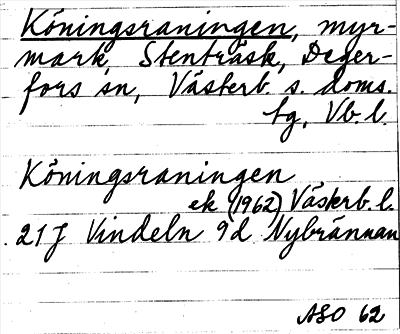 Köningsraningen, myr-
mark, Stenträsk, Deger-
fors sn, Västerb. s. doms.
tg, Vb. l.
Köningsraningen
ek (1962) Västerb. l.
21J Vindeln 9d Nybrännan
ASO 62